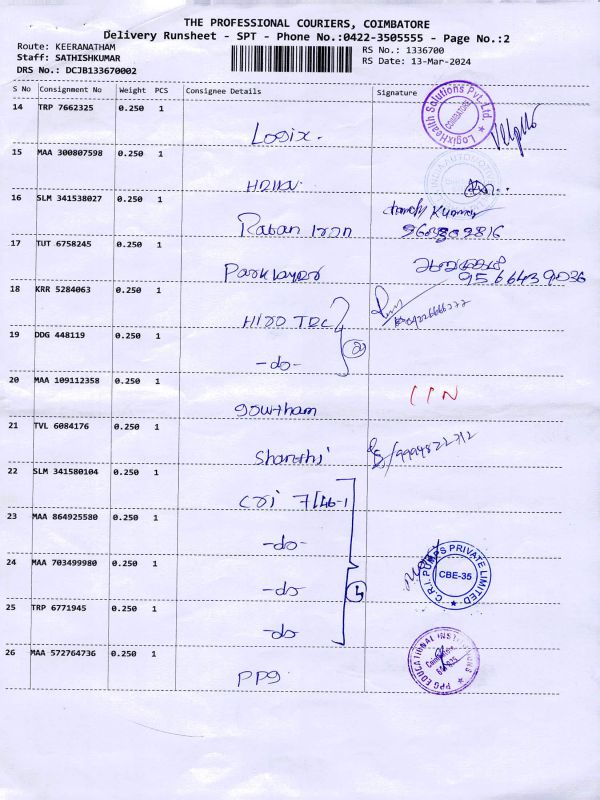 THE PROFESSIONAL COURIERS, COIMBATORE
Delivery Runsheet - SPT - Phone No.:0422-3505555 - Page No.:2
Route: KEERANATHAM
Staff: SATHISHKUMAR
DRS No.: DCJB133670002
RS No.: 1336700
RS Date: 13-Mar-2024
S No Consignment No Weight PCS Consignee Details Signature
14 TRP 7662325 0.250 1 Logix. LogixHealth Solutions Pvt. Ltd. COIMBATORE
15 MAA 300807598 0.250 1
16 SLM 341538027 0.250 1
17 TUT 6758245 0.250 1 9566439036
18 KRR 5284063 0.250 1
19 DDG 448119 0.250 1 -do-
20 MAA 109112358 0.250 1 gowtham
21 TVL 6084176 0.250 1 Sharuthi
22 SLM 341580104 0.250 1 CRI 7/46-1
23 MAA 864925580 0.250 1 -do-
24 MAA 703499980 0.250 1 -do- C.R.I. PUMPS PRIVATE LIMITED CBE-35
25 TRP 6771945 0.250 1 -do-
26 MAA 572764736 0.250 1 PPg PPG EDUCATIONAL INSTITUTIONS Coimbatore